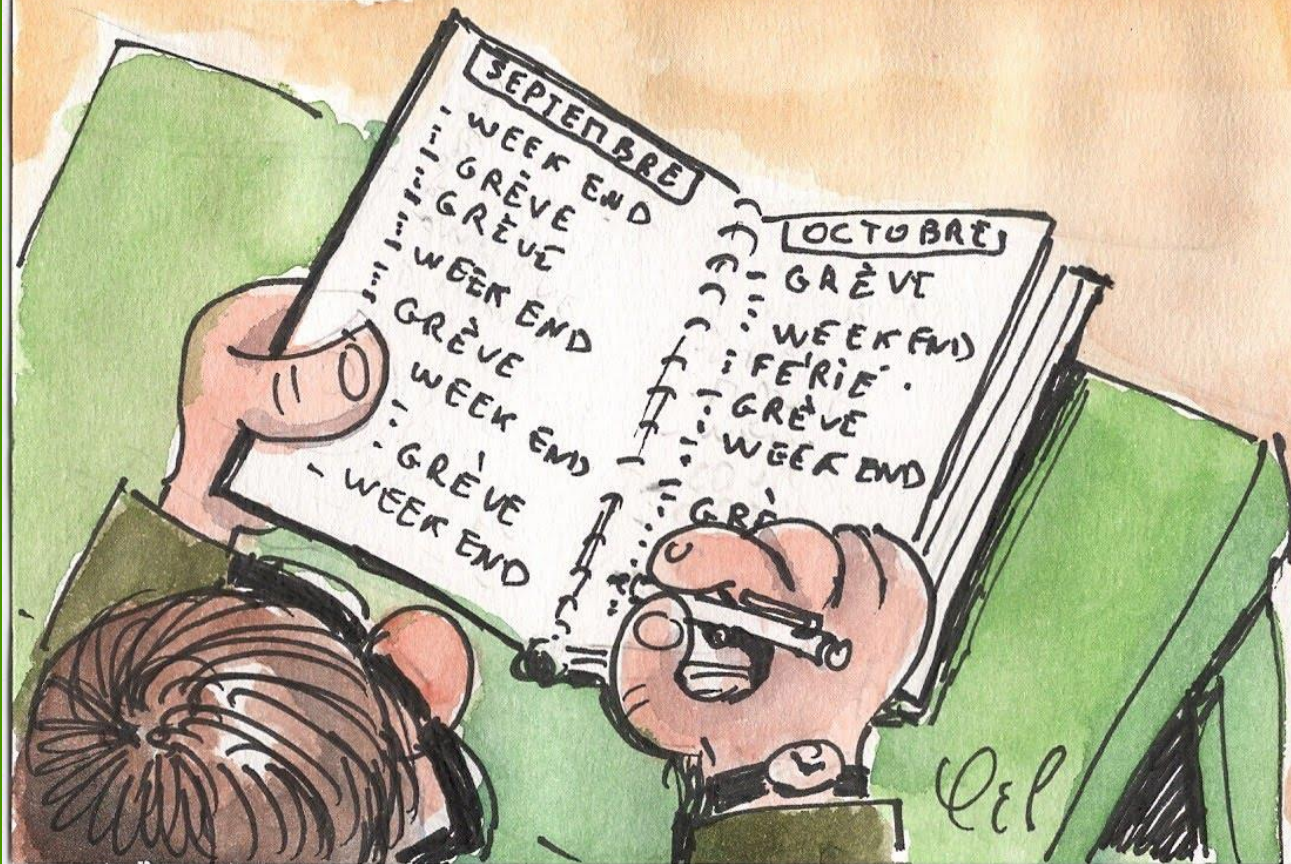 SEPTEMBRE
- WEEK END
GRÈVE
GRÈVE
WEEK END
GRÈVE
WEEK END
GRÈVE
- WEEK END
OCTOBRE
- GRÈVE
WEEK END
FÉRIÉ.
GRÈVE
WEEK END
GRÈ